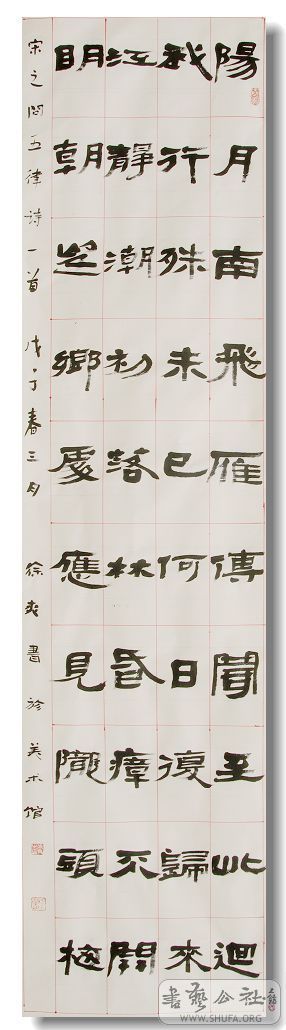 陽月南飛雁傳聞至此迴
我行殊未已何日復歸來
江靜潮初落林昏瘴不開
明朝望鄉處應見隴頭梅
宋之問五律詩一首 戊子春三月 徐爽書於美术館
書藝公社
WWW.SHUFA.ORG